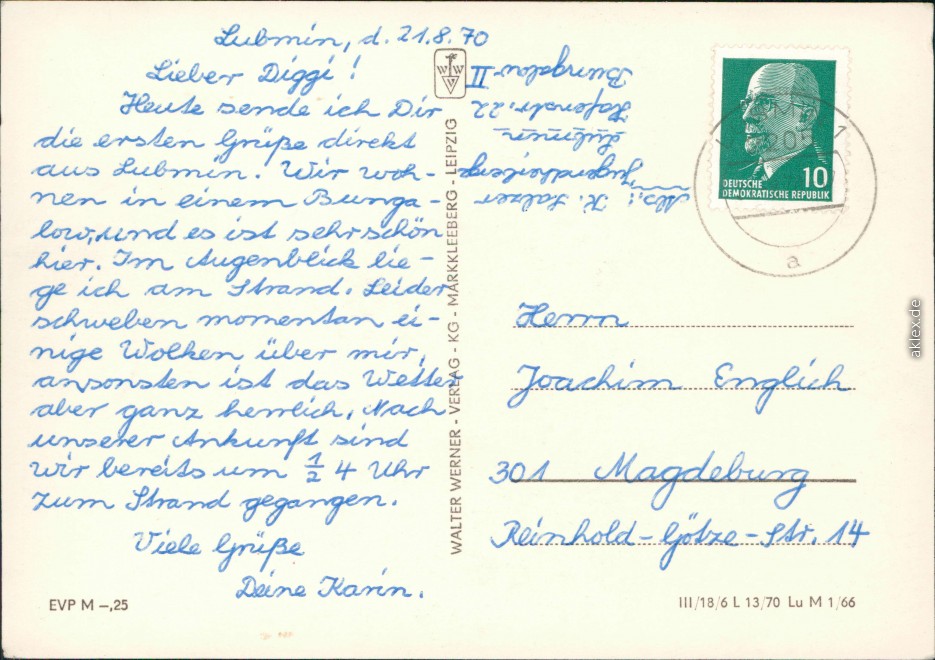 Lubmin, d. 21.8.70
Lieber Diggi!
Heute sende ich Dir
die ersten Grüße direkt
aus Lubmin. Wir woh-
nen in einem Bunga-
low, und es ist sehr schön
hier. Im Augenblick lie-
ge ich am Strand. Leider
schweben momentan ei-
nige Wolken über mir,
ansonsten ist das Wetter
aber ganz herrlich. Nach
unserer Ankunft sind
wir bereits um ½ 4 Uhr
zum Strand gegangen.
Viele Grüße
Deine Karin.
Abs.: K. Salzer
Lubmin
Hafenstr. 22
Bungalow II
WALTER WERNER - VERLAG - KG - MARKKLEEBERG - LEIPZIG
DEUTSCHE
DEMOKRATISCHE REPUBLIK
10
a
Herrn
Joachim Englich
301 Magdeburg
Reinhold-Götze-Str. 14
EVP M –,25
III/18/6 L 13/70 Lu M 1/66
aklex.de